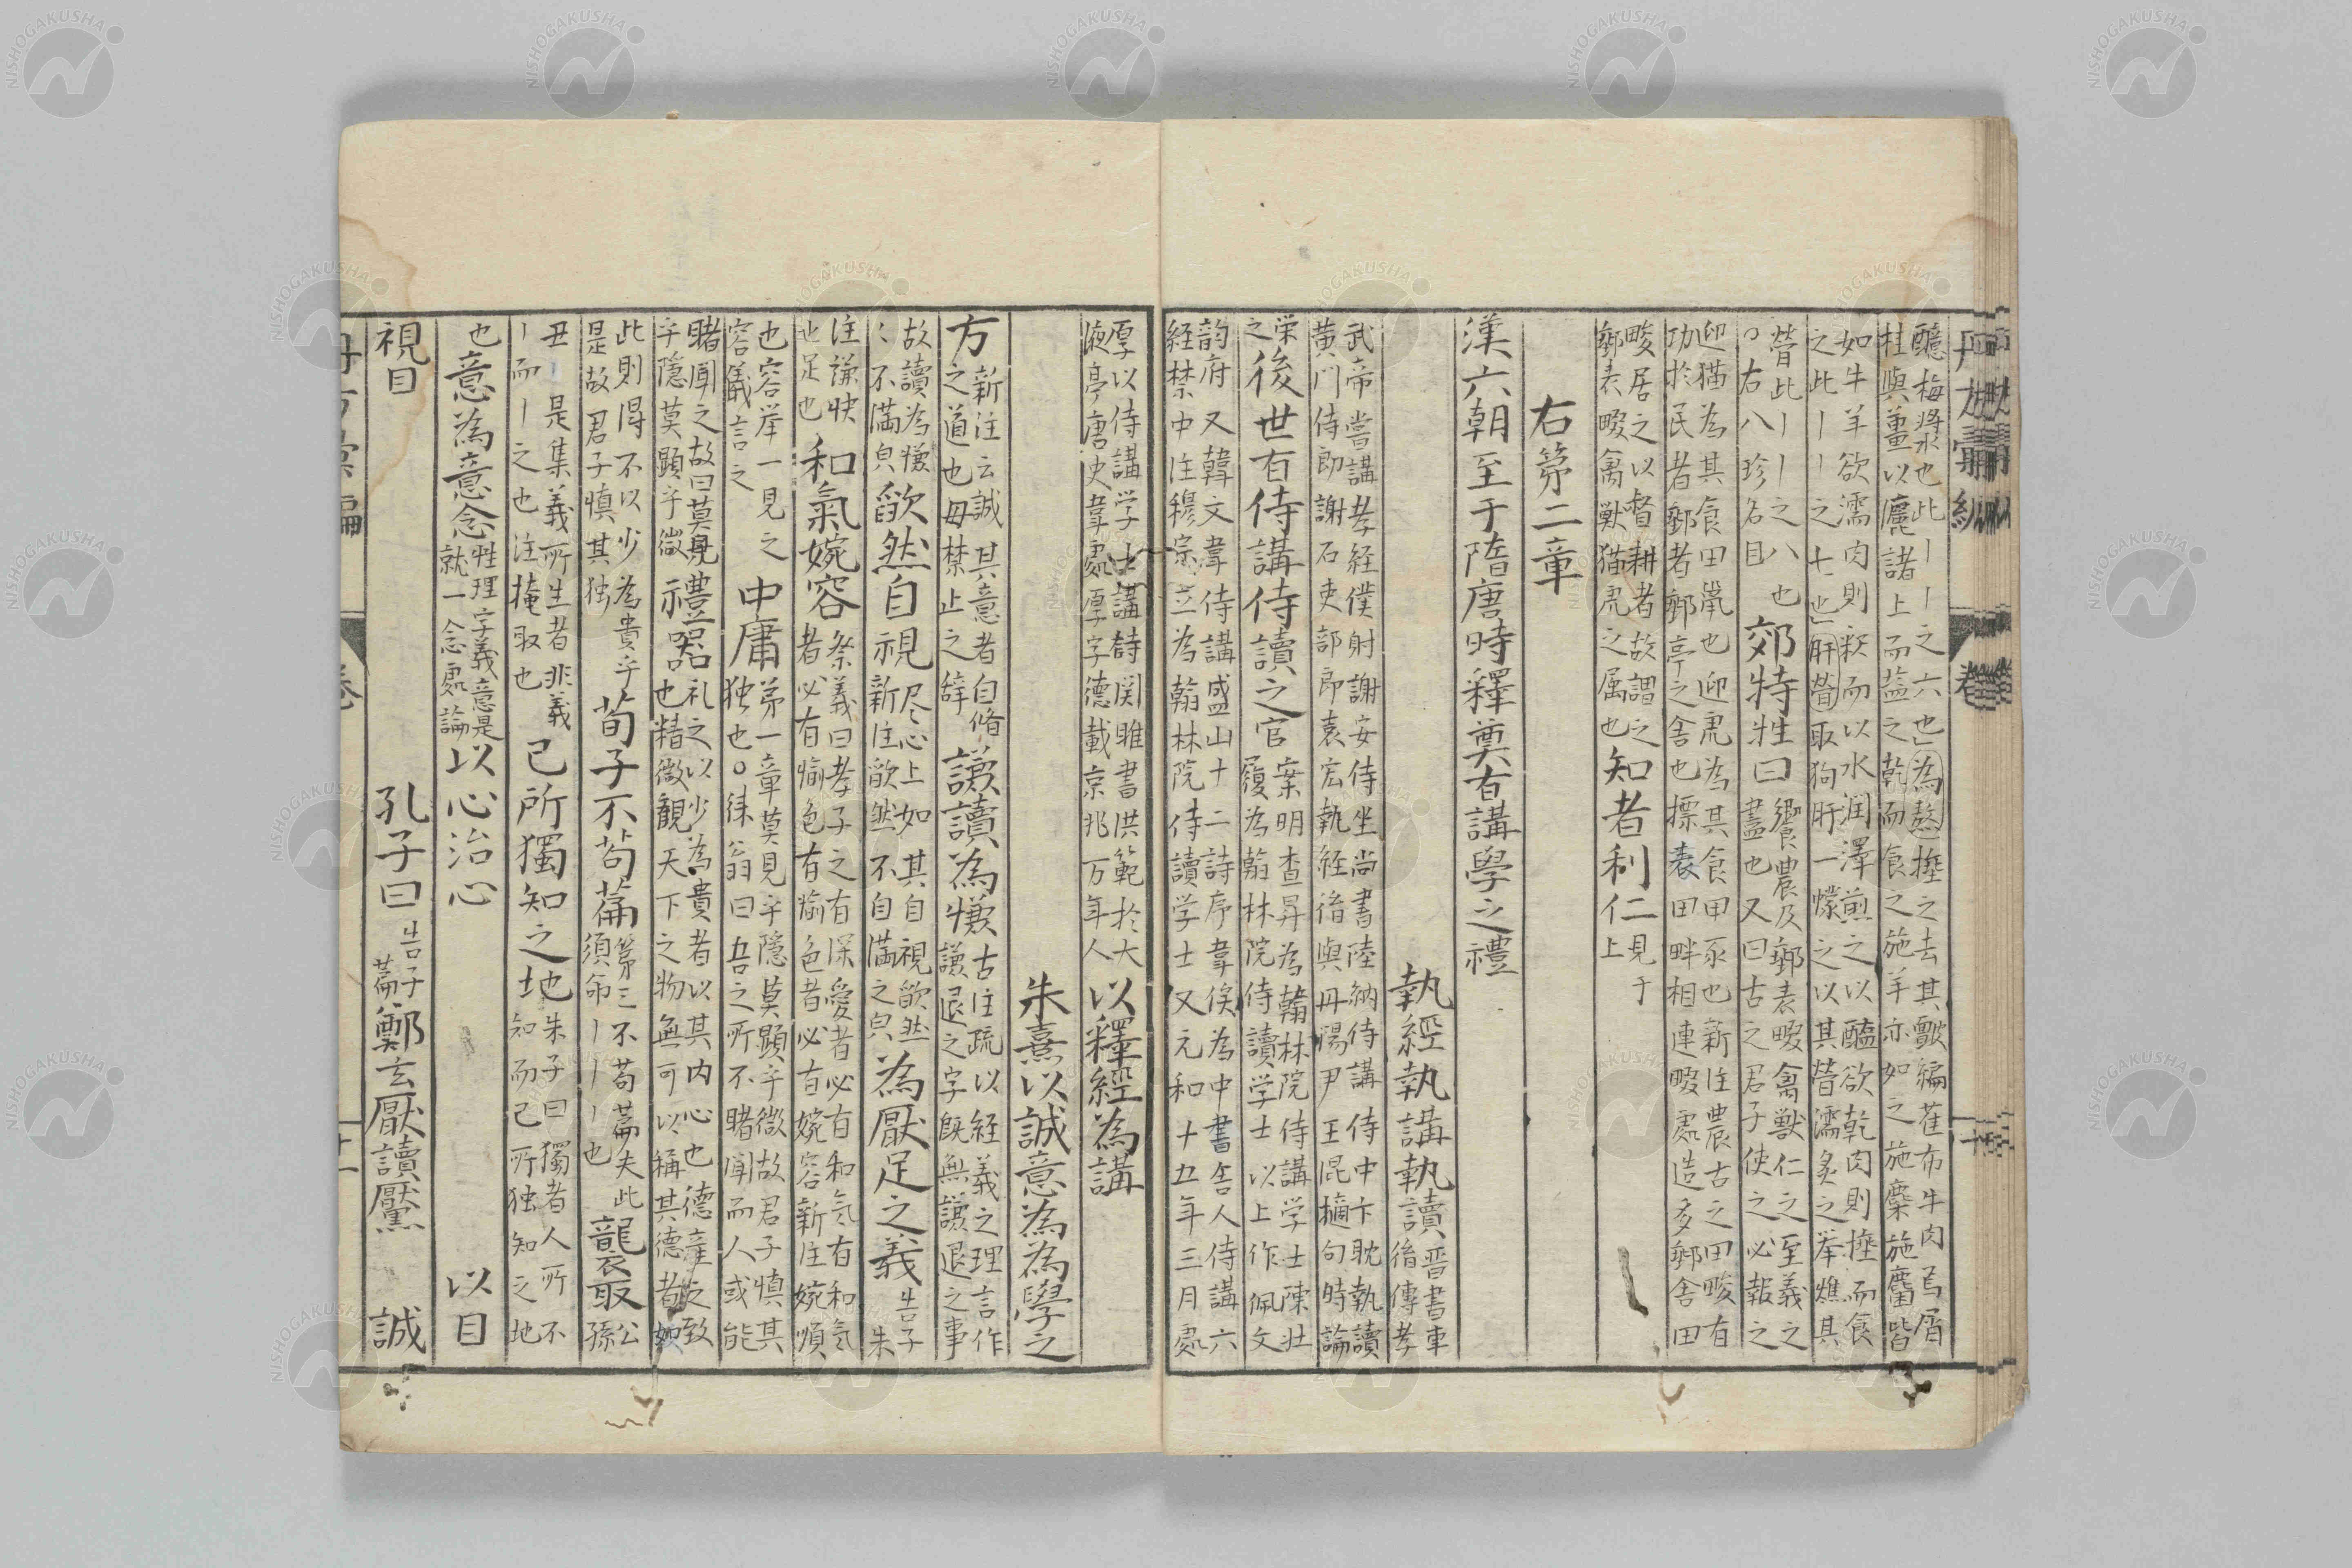 醷梅漿也此丨丨之六也」為熬捶之去其皽編萑布牛肉焉屑
桂與薑以灑諸上而盬之乾而食之施羊亦如之施麋施麕皆
如牛羊欲濡肉則釈而以水潤澤煎之以醢欲乾肉則捶而食
之此丨丨之七也」肝膋取狗肝一幪之以其膋濡炙之举燋其
膋此丨丨之八也
○右八珍名目
郊特牲曰
饗農及郵表畷禽獣仁之至義之
盡也又曰古之君子使之必報之
迎猫為其食田鼠也迎虎為其食田豕也新注農古之田畯有
功於民者郵者郵亭之舎也標表田畔相連畷處造多郵舎田
畯居之以督耕者故謂之
郵表畷禽獣猫虎之属也
知者利仁
見于
上
右第二章
漢六朝至于隋唐時釋奠有講學之禮
執經執講執讀
晋書車
後傳孝
武帝嘗講孝経僕射謝安侍坐尚書陸納侍講侍中卞耽執讀
黄門侍郎謝石吏部郎袁宏執経後與丹陽尹王混擿句時論
栄
之
後世有侍講侍讀之官
案明查昇為翰林院侍講学士陳壮
履為翰林院侍讀学士以上作佩文
韵府又韓文韋侍講盛山十二詩序韋侯為中書舎人侍講六
経禁中注穆宗立為翰林院侍讀学士又元和十五年三月處
厚以侍講学士講詩関雎書洪範於大
液亭唐史韋處厚字德載京兆万年人
以釋經為講
朱熹以誠意為為學之
方
新注云誠其意者自脩
之道也毋禁止之辞
謙讀為慊
古注疏以経義之理言作
謙退之字既無謙退之事
故讀為慊
ヽ不満㒵
欿然自視
尽心上如其自視欿然
新注欿然不自満之㒵
為厭足之義
告子
朱
注謙快
也足也
和氣婉容
祭義曰孝子之有深愛者必有和気有和気
者必有愉色有愉色者必有婉容新注婉順
也容举一見之
容儀言之
中庸
第一章莫見乎隠莫顕乎微故君子慎其
独也○徠翁曰吾之所不睹聞而人或能
睹聞之故曰莫見
乎隠莫顕乎微
禮器
礼之以少為貴者以其内心也德産之致
也精微觀天下之物無可以稱其德者如
此則得不以少為貴乎
是故君子慎其独
荀子不苟篇
第三不苟篇夫此
須命丨丨丨也
襲取
公
孫
丑丨是集義所生者非義
丨而丨之也注掩取也
己所獨知之地
朱子曰獨者人所不
知而己所独知之地
也
意為意念
性理字義意是
就一念處論
以心治心
以目
視目
孔子曰
告子
篇
鄭玄厭讀黶
誠